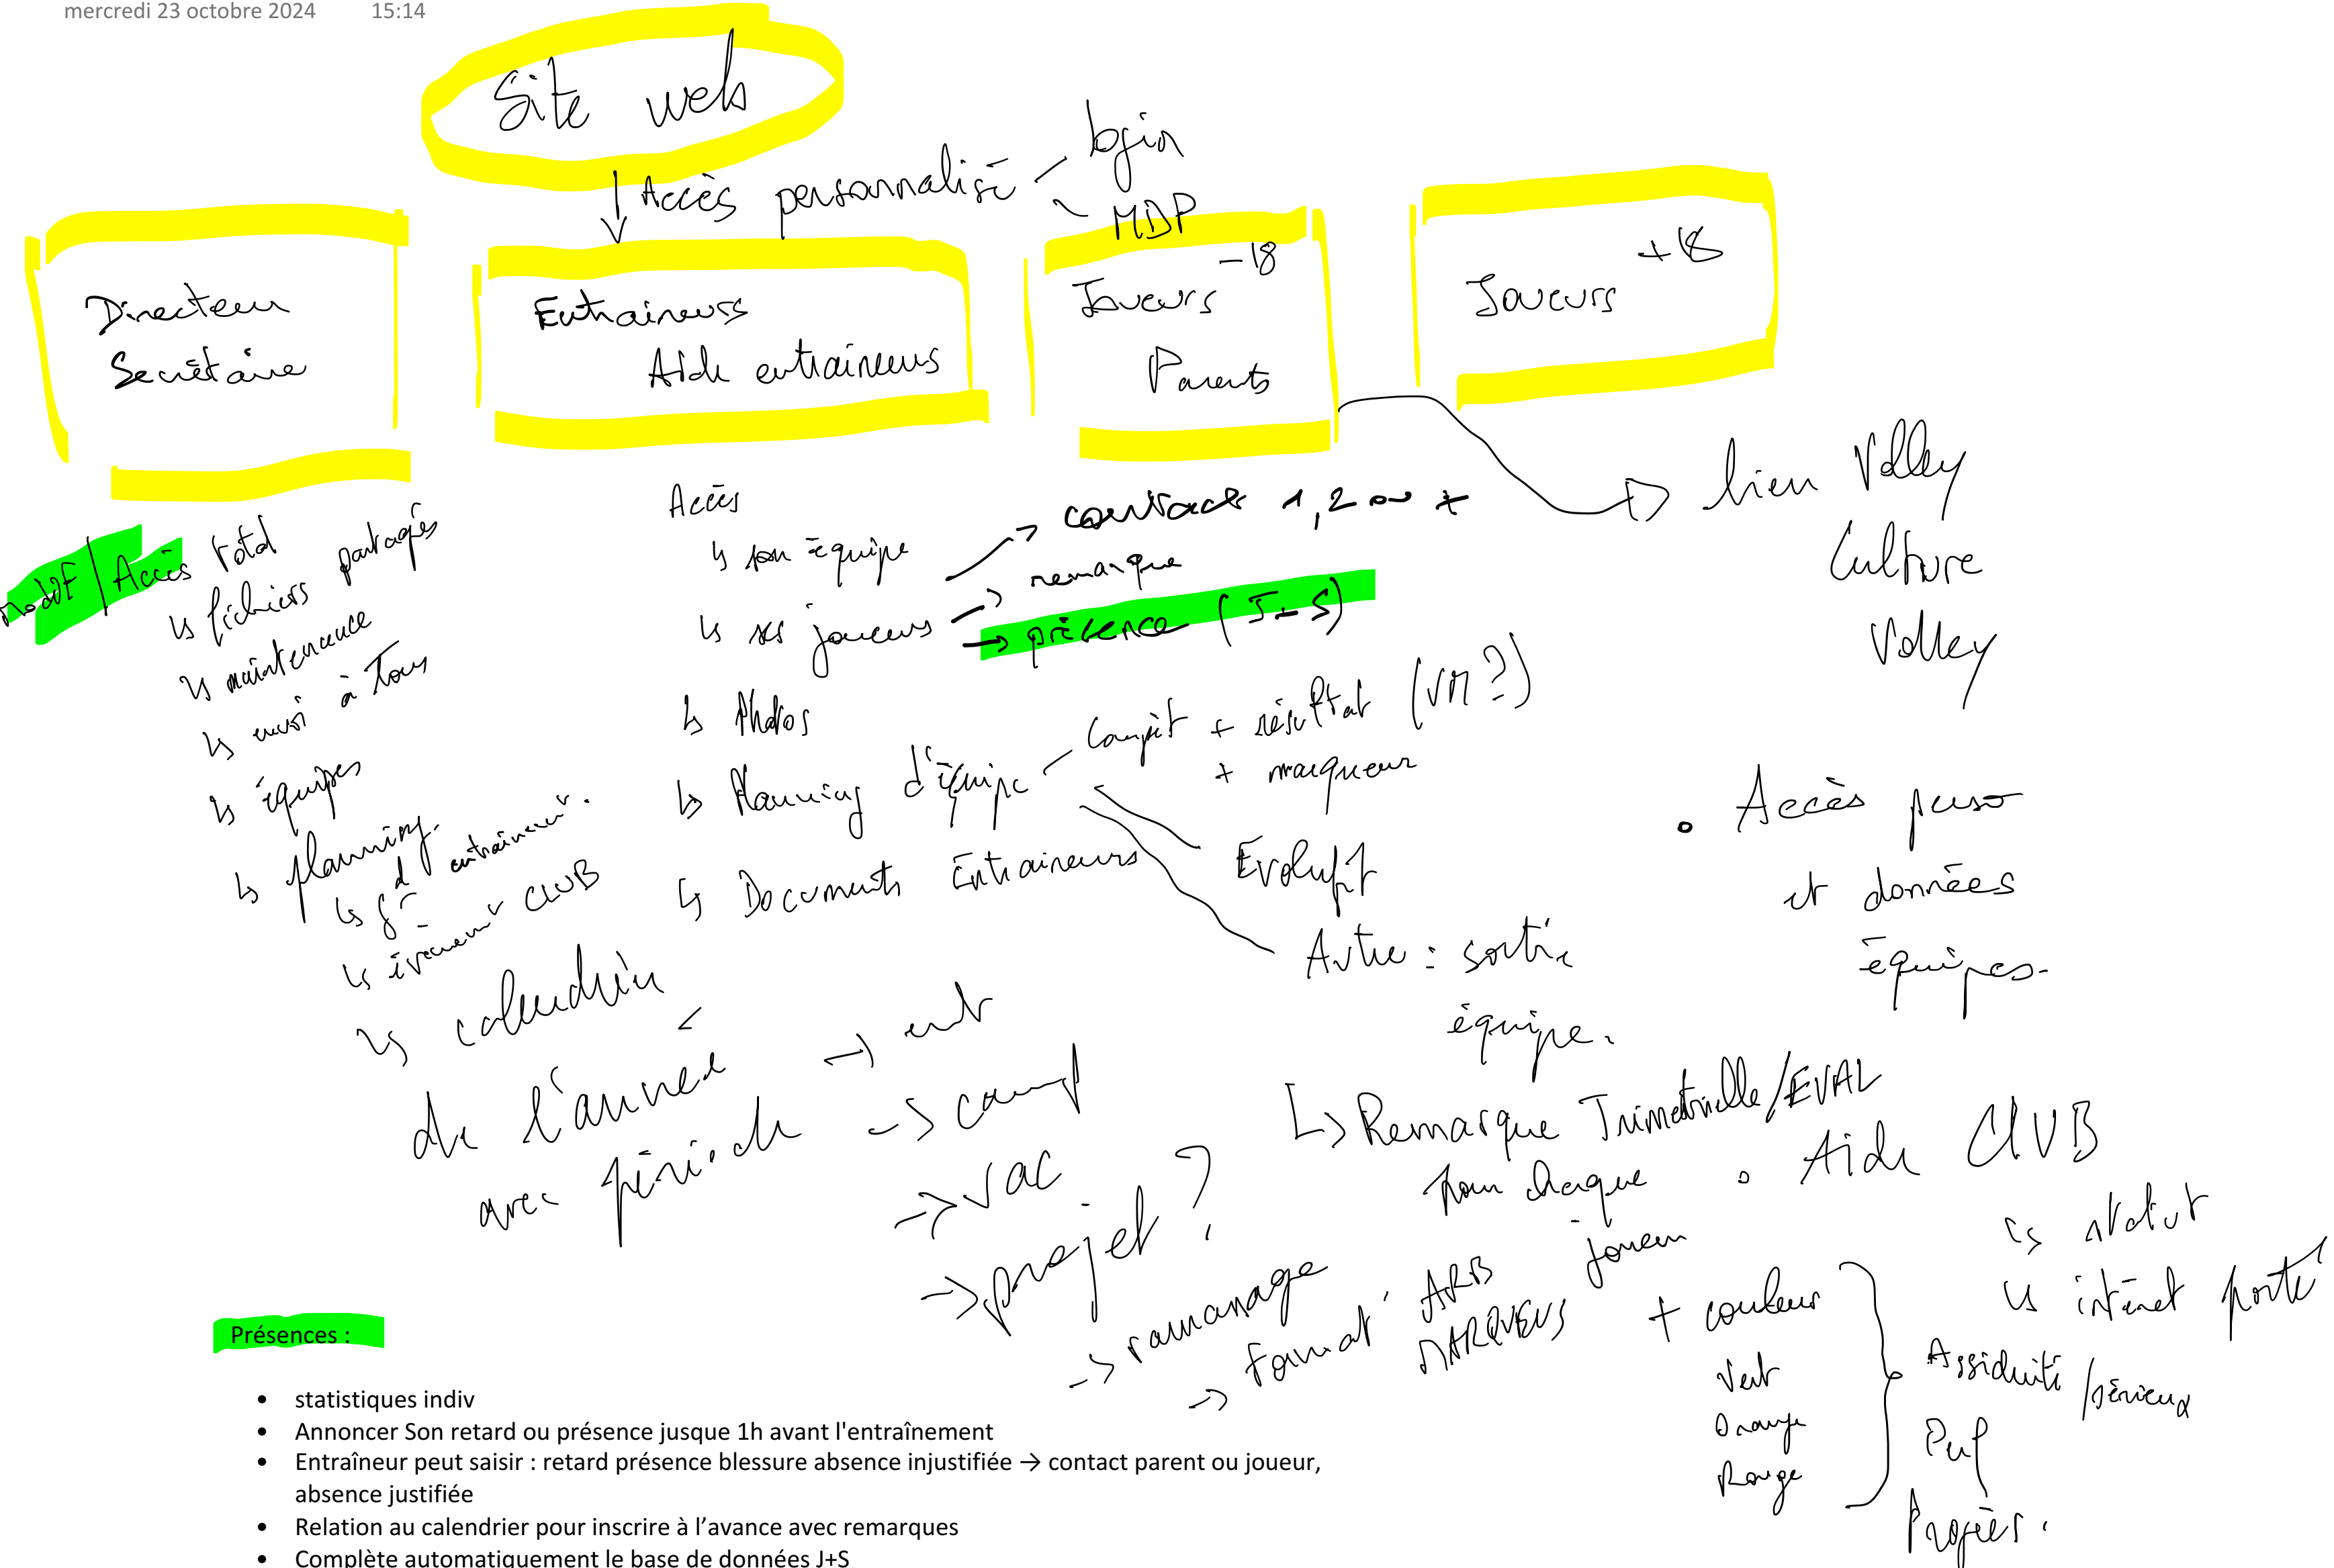 mercredi 23 octobre 2024 15:14
Site web
Accès personnalisé
login
MDP
Directeur
Secrétaire
Entraineurs
Aide entraineurs
-18
Joueurs
Parents
+18
Joueurs
Modif / Accès total
↳ fichiers partagés
↳ maintenance
↳ envoi à Tous
↳ équipes
↳ planning
↳ gd entrainemt.
↳ évènemt CLUB
↳ calendrier
de l'année
avec période
→ ent
→ camp
→ vac
→ projet ?
→ ramassage
→ Format° ARB
MARQUEURS
Accès
↳ son équipe
↳ ses joueurs
→ contact 1, 2 ou +
→ remarque
→ présence (J+S)
↳ Photos
↳ Planning d'équipe
Compèt + résultat (VM ?)
+ marqueur
Evolufit
Autre : sortie
équipe.
↳ Documents Entraineurs
↳ Remarque Trimestrielle/EVAL
pour chaque
joueur
+ couleur
Vert
Orange
Rouge
Assiduité /sérieux
Perf
Progrès.
→ lien Volley
Culture
Volley
• Accès perso
et données
équipes.
• Aide CLUB
↳ statut
↳ intéret porté
Présences :
• statistiques indiv
• Annoncer Son retard ou présence jusque 1h avant l'entraînement
• Entraîneur peut saisir : retard présence blessure absence injustifiée → contact parent ou joueur,
absence justifiée
• Relation au calendrier pour inscrire à l’avance avec remarques
• Complète automatiquement le base de données J+S